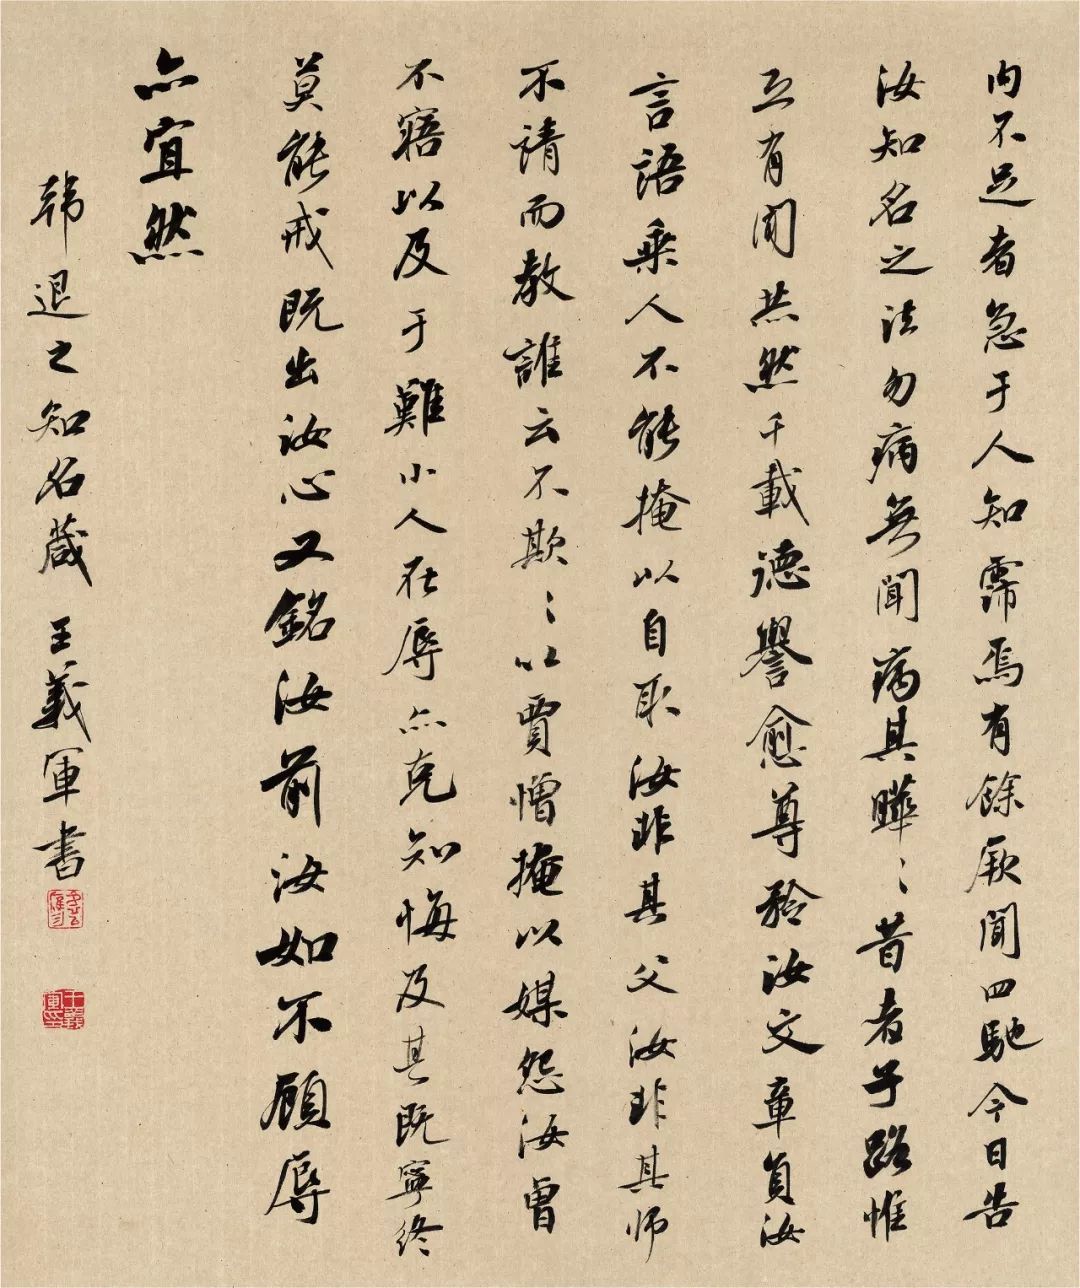 內不足者急于人知霈焉有餘厥聞四馳今日告
汝知名之法勿病無聞病其曄〻昔者子路惟
恐有聞赫然千載德譽愈尊矜汝文章負汝
言語乘人不能掩以自取汝非其父汝非其師
不請而教誰云不欺〻以賈憎掩以媒怨汝曾
不寤以及于難小人在辱亦克知悔及其既寧終
莫能戒既出汝心又銘汝前汝如不顧辱
亦宜然
韓退之知名箴 王義軍書
王義軍印